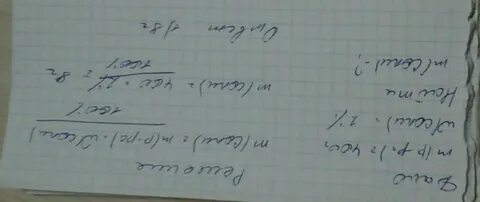 Дано
m(р-р) = 400г
W(соли) = 2%
Найти
m(соли) - ?
Решение
m(соли) = m(р-ра) · W(соли)
100%
m(соли) = 400 · 2% = 8г
100%
Ответ 8г